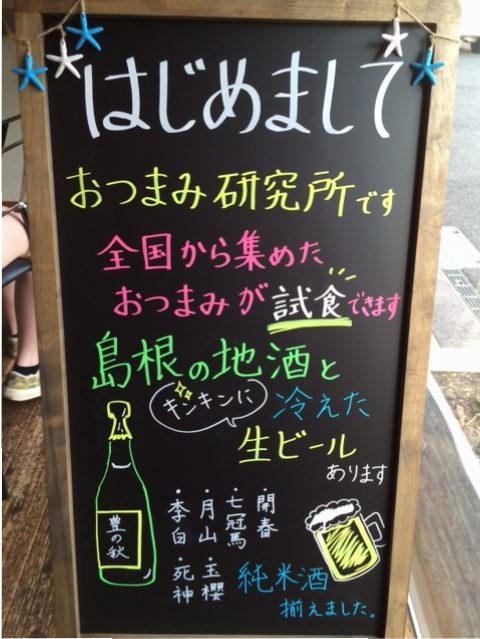 はじめまして
おつまみ研究所です
全国から集めた
おつまみが試食できます
島根の地酒と
キンキンに
冷えた
生ビール
あります
豊の秋
・開春
・七冠馬
・月山
・李白
・玉櫻
・死神
純米酒
揃えました。